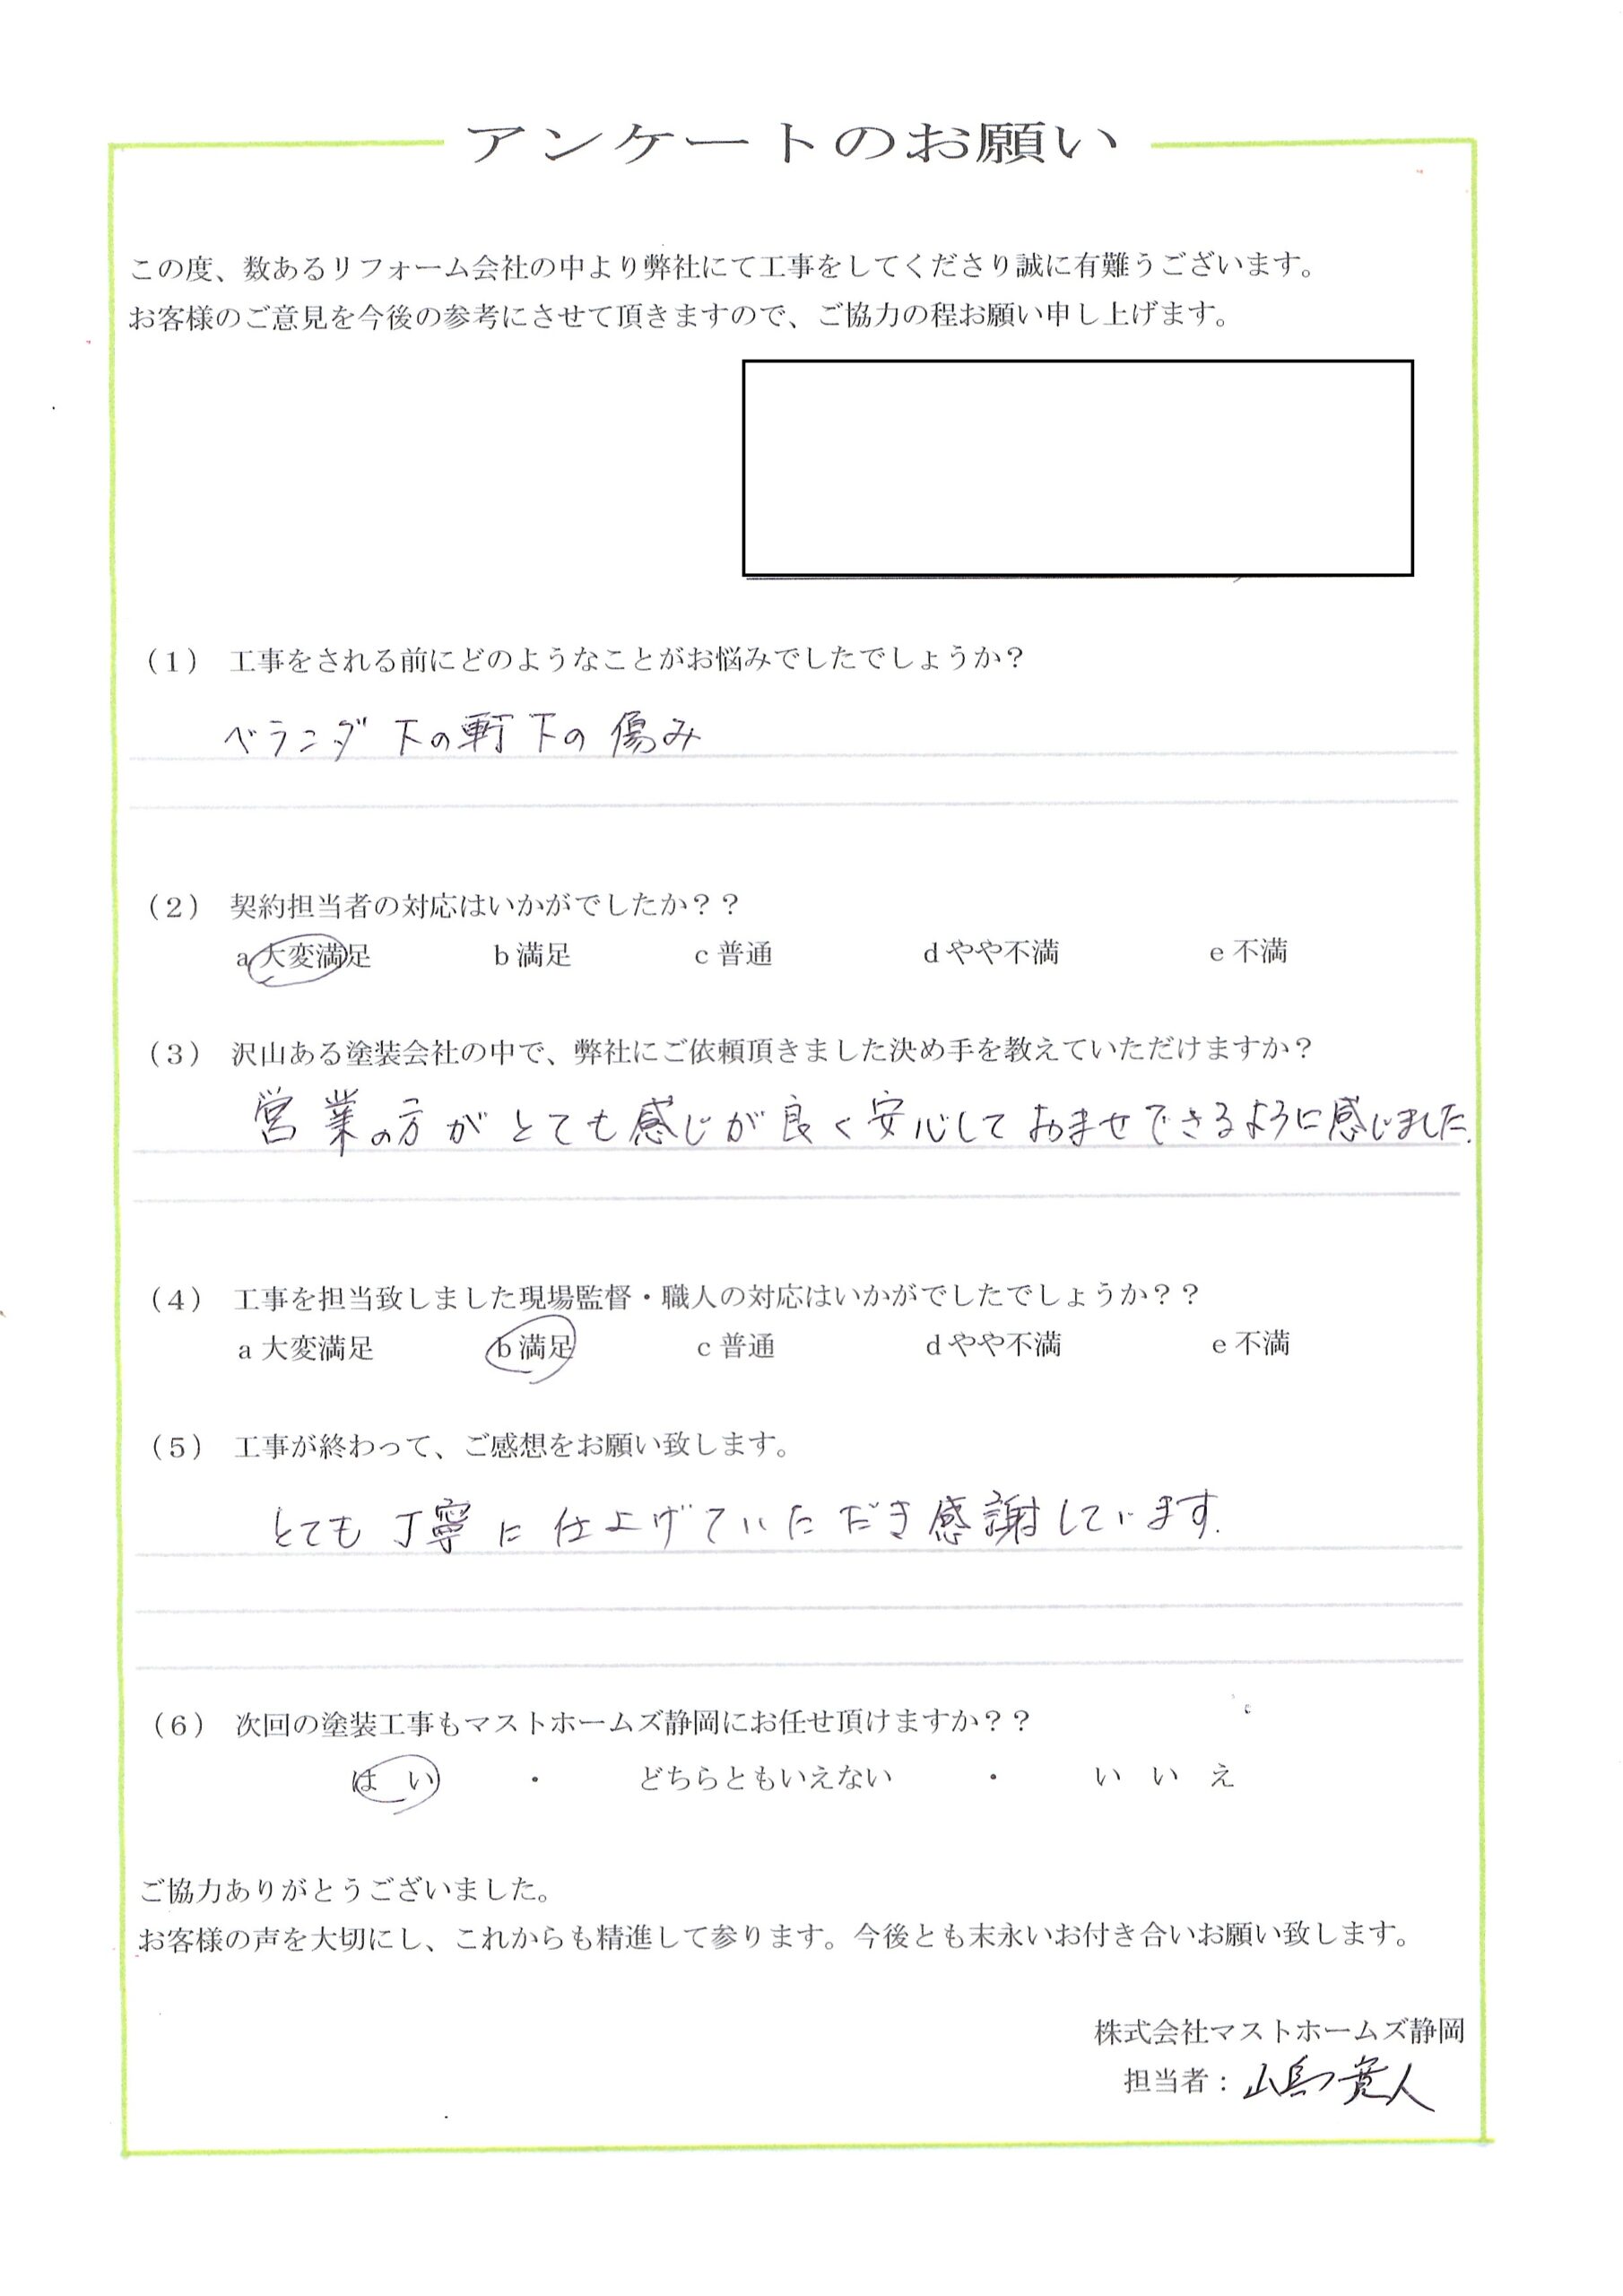 アンケートのお願い
この度、数あるリフォーム会社の中より弊社にて工事をしてくださり誠に有難うございます。
お客様のご意見を今後の参考にさせて頂きますので、ご協力の程お願い申し上げます。
（1） 工事をされる前にどのようなことがお悩みでしたでしょうか？
ベランダ下の軒下の傷み
（2） 契約担当者の対応はいかがでしたか？？
a 大変満足 b 満足 c 普通 d やや不満 e 不満
（3） 沢山ある塗装会社の中で、弊社にご依頼頂きました決め手を教えていただけますか？
営業の方がとても感じが良く安心しておませできるように感じました.
（4） 工事を担当致しました現場監督・職人の対応はいかがでしたでしょうか？？
a 大変満足 b 満足 c 普通 d やや不満 e 不満
（5） 工事が終わって、ご感想をお願い致します。
とても丁寧に仕上げていただき感謝しています.
（6） 次回の塗装工事もマストホームズ静岡にお任せ頂けますか？？
は い ・ どちらともいえない ・ い い え
ご協力ありがとうございました。
お客様の声を大切にし、これからも精進して参ります。今後とも末永いお付き合いお願い致します。
株式会社マストホームズ静岡
担当者：